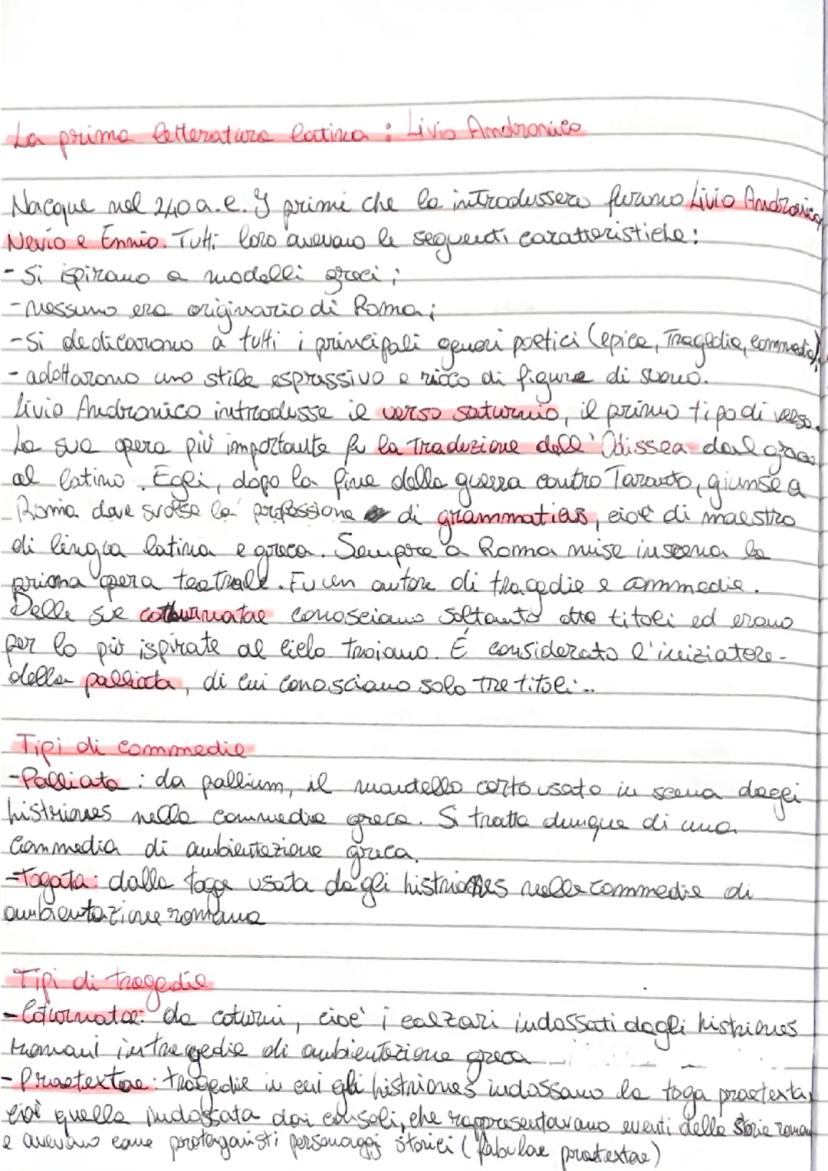 La prima letteratura latina : Livio Andronico
Nacque nel 240 a.C. I primi che la introdussero furono Livio Andronico,
Nevio e Ennio. Tutti loro avevano le seguenti caratteristiche:
- Si ispirano a modelli greci;
- nessuno era originario di Roma;
- Si dedicarono a tutti i principali generi poetici (epica, Tragedia, commedia);
- adottarono uno stile espressivo e ricco di figure di suono.
Livio Andronico introdusse il verso saturnio, il primo tipo di verso.
La sua opera più importante fu la traduzione dell'Odissea dal greco
al latino. Egli, dopo la fine della guerra contro Taranto, giunse a
Roma dove svolse la professione di grammaticus, cioè di maestro
di lingua latina e greca. Sempre a Roma mise in scena la
prima opera teatrale. Fu un autore di tragedie e commedie.
Delle sue cothurnatae conosciamo soltanto otto titoli ed erano
per lo più ispirate al ciclo troiano. É considerato l'iniziatore
della palliata, di cui conosciamo solo tre titoli..
Tipi di commedie
- Palliata : da pallium, il mantello corto usato in scena dagli
histriones nella commedia greca. Si tratta dunque di una
commedia di ambientazione greca.
- Togata: dalla toga usata dagli histriones nelle commedie di
ambientazione romana
Tipi di tragedie
- Coturnatae: da coturni, cioè i calzari indossati dagli histriones
romani in tragedie di ambientazione greca
- Praetextae: tragedie in cui gli histriones indossano la toga praetexta,
cioè quella indossata dai consoli, che rappresentavano eventi della storia romana
e avevano come protagonisti personaggi storici (fabulae praetextae)